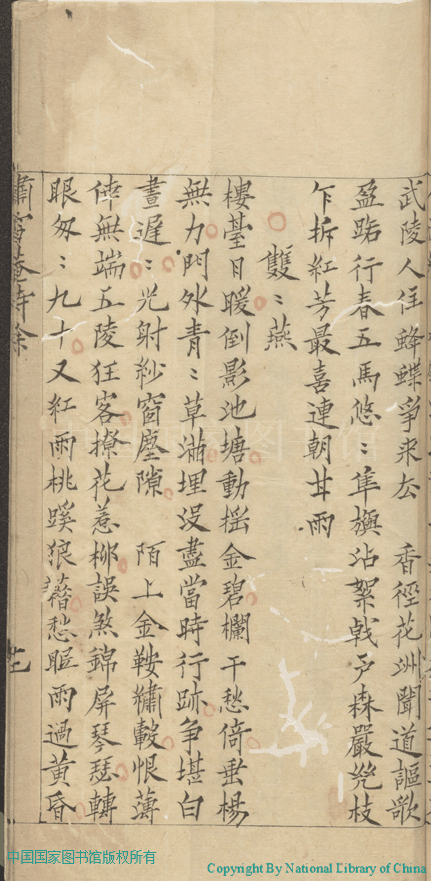 武陵人住蜂蝶爭来去　香徑花洲聞道謳歌
盈路行春五馬悠〻隼旟沾絮戟戸森嚴𠒇枝
乍拆紅芳最喜連朝甘雨
雙〻燕
樓臺日暖倒影池塘動揺金碧欄干愁倚垂楊
無力門外青〻草滿埋没盡當時行跡争堪白
晝遲〻光射紗窗塵隙　陌上金鞍繡轂恨薄
倖無端五陵狂客撩花惹柳誤煞錦屏琴瑟轉
眼匆〻九十又紅雨桃蹊狼籍愁聽雨過黄昏
中国国家图书馆版权所有
Copyright By National Library of China